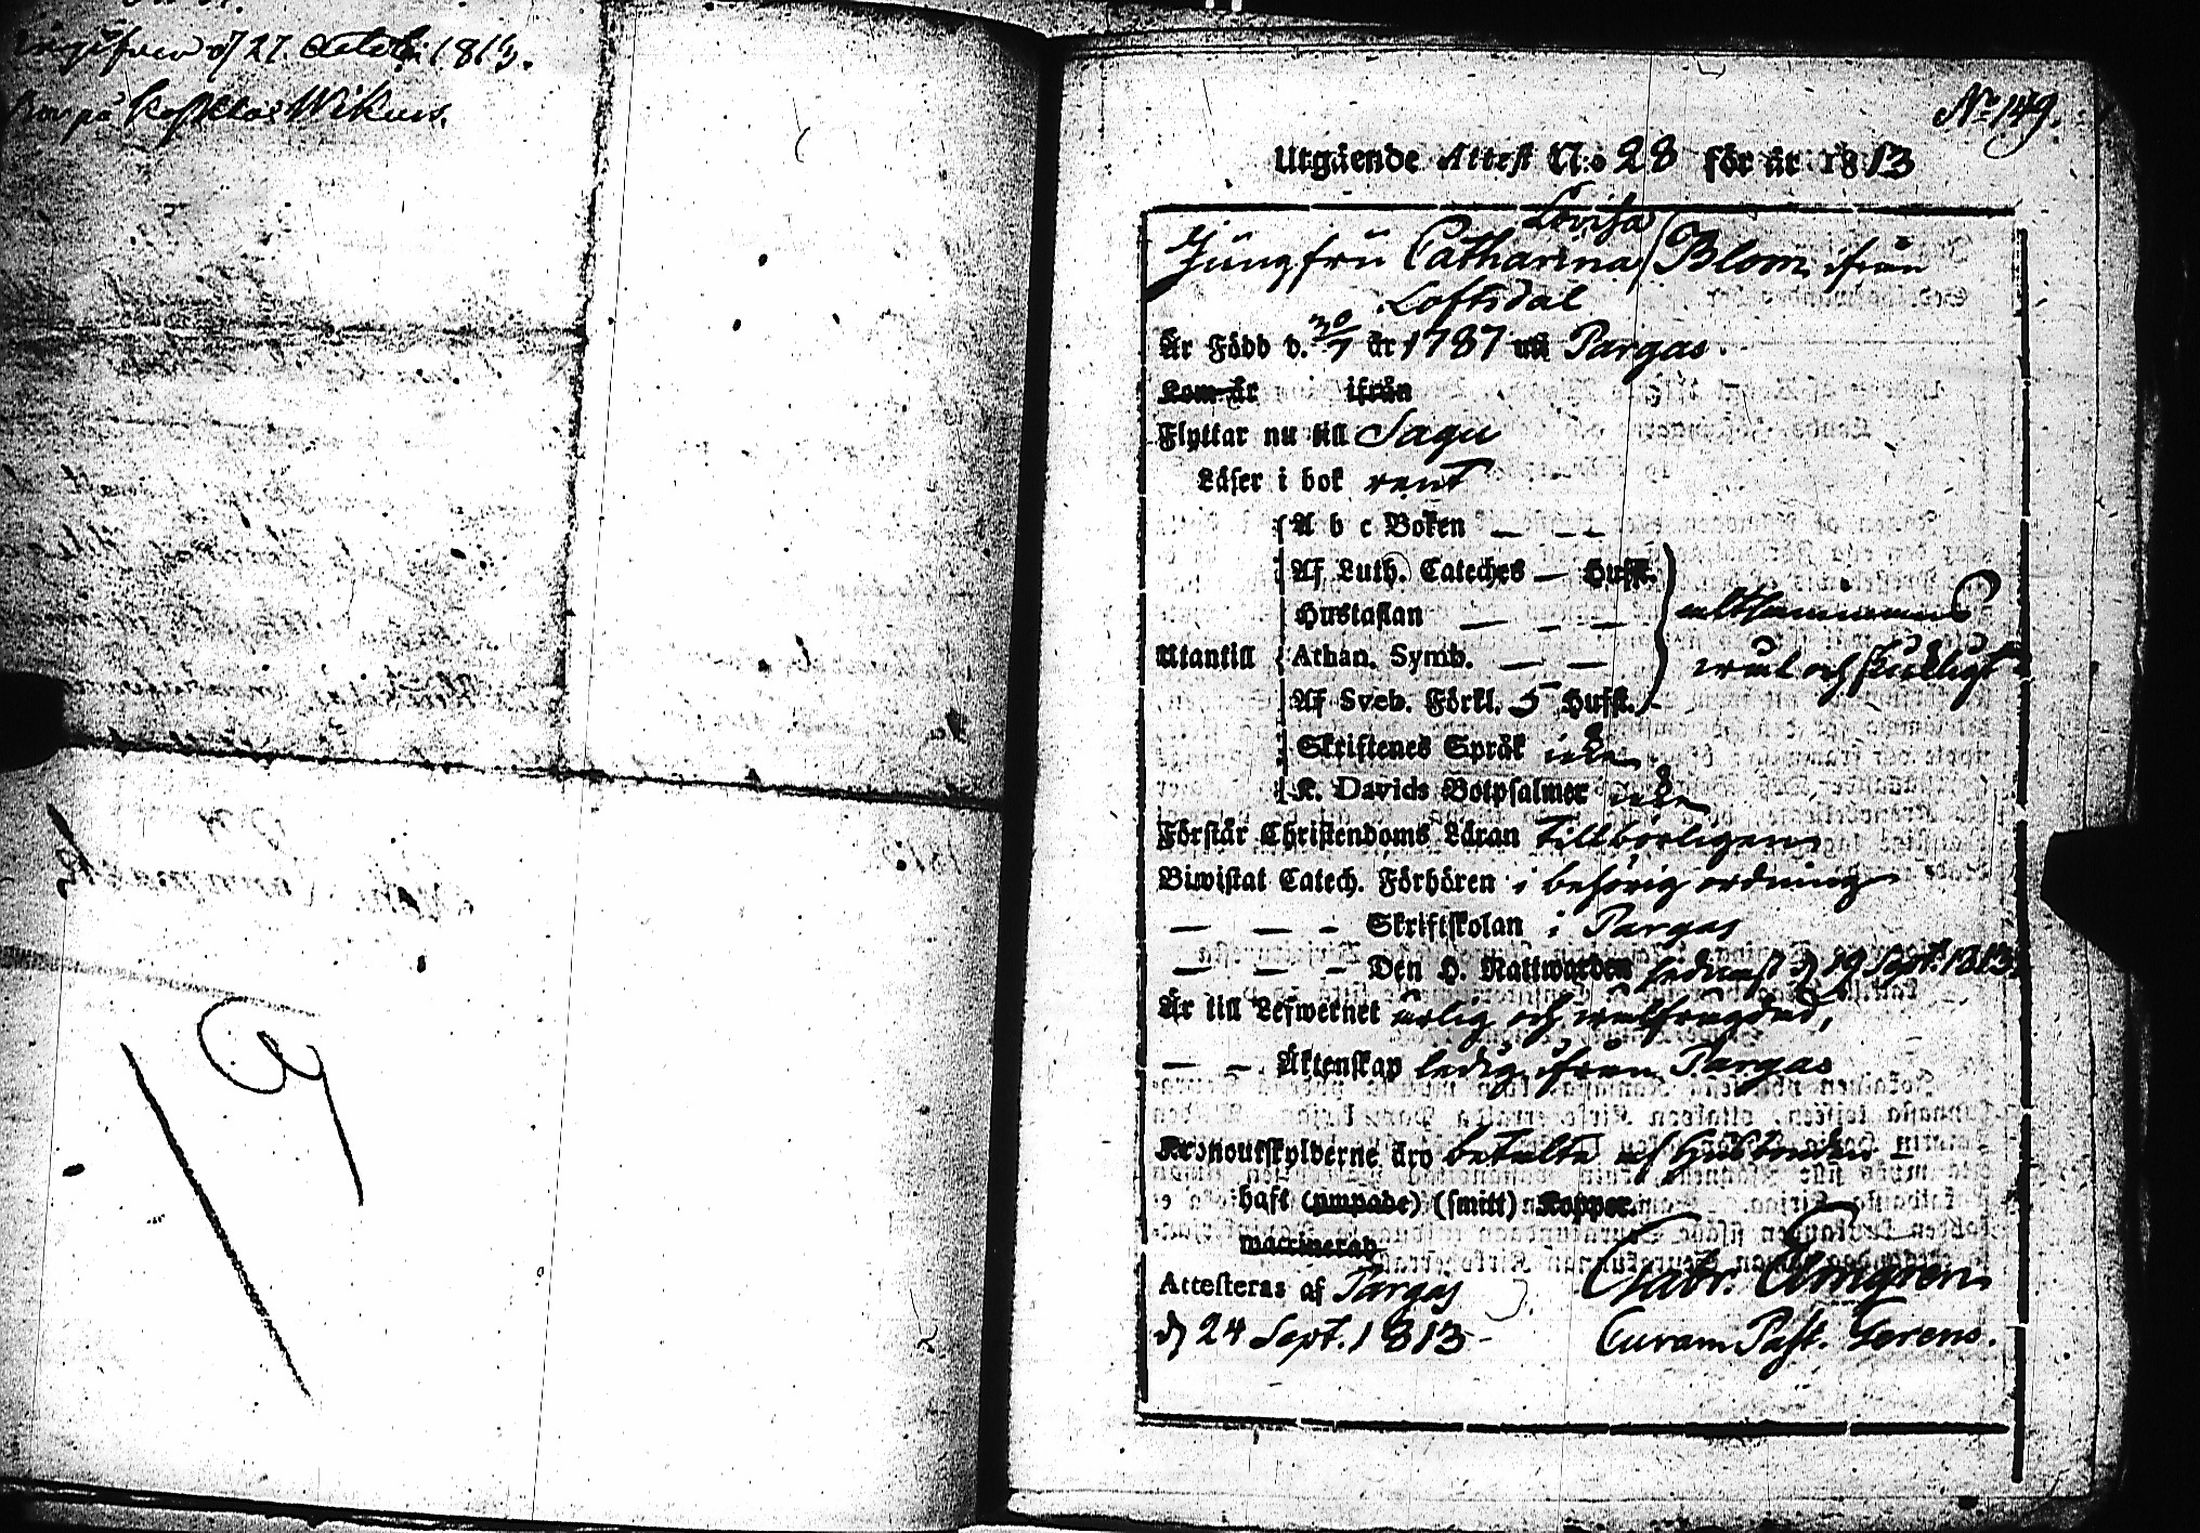 d 27. Octob: 1813.
på Wikars.
No 149.
Utgående Attest N:o 28 för år 1813
Lovisa
Jungfru Catharina / Bloom ifrån
Loftsdal
Är Född d. 30/7 år 1787 uti Pargas.
Kom år ifrån
Flyttar nu till Sagu
Läser i bok rent
A b c Boken — — —
Af Luth. Cateches — Hufst.
Hustaflan — — — altsammans
Utantill Athan. Symb. — — wäl och skickligt
Af Sveb. Förkl. 5 Hufst.
Skriftenes Språk icke
K. Davids Botpsalmer icke
Förstår Christendoms Läran tillbörligen
Biwistat Catech. Förhören i behörig ordning
— — — Skriftskolan i Pargas
— — — Den H. Nattwarden sednast d 19 Sept. 1813.
Är till Lefwernet ärlig och wälfrägdad,
— — Äktenskap ledig ifrån Pargas
Kronoutskylderne äro betalte af Husbonden —
haft (ympade) (smitt) Koppor.
vaccinerad
Attesteras af Pargas Gabr. Almgren
d 24 Sept. 1813 - Curam Past. Gerens.